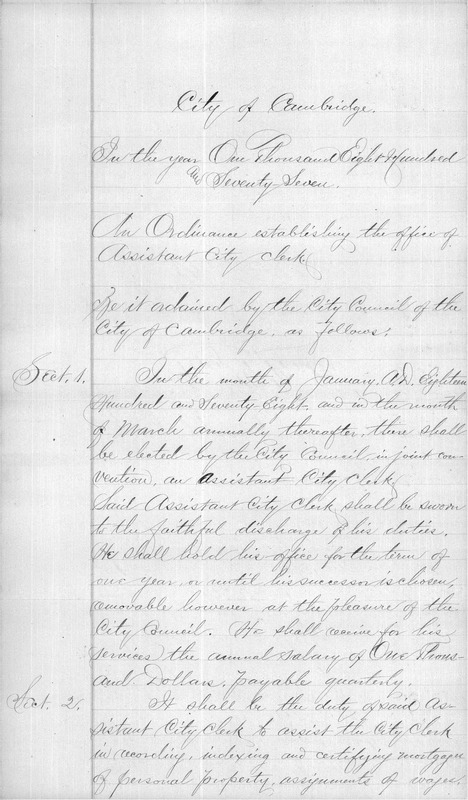 City of Cambridge.
In the year One Thousand Eight Hundred
and Seventy-Seven.
An Ordinance establishing the office of
Assistant City Clerk
Be it ordained by the City Council of the
City of Cambridge, as follows:
Sect. 1. In the month of January A.D. Eighteen
Hundred and Seventy Eight, and in the month
of March annually thereafter, there shall
be elected by the City Council in joint con-
vention, an assistant City Clerk
Said Assistant City Clerk shall be sworn
to the faithful discharge of his duties.
He shall hold his office for the term of
one year, or until his successor is chosen,
removable however at the pleasure of the
City Council. He shall receive for his
services the annual salary of One Thous-
and Dollars, payable quarterly.
Sect. 2. It shall be the duty of said As-
sistant City Clerk to assist the City Clerk
in recording, indexing and certifying mortgages
of personal property, assignments of wages,